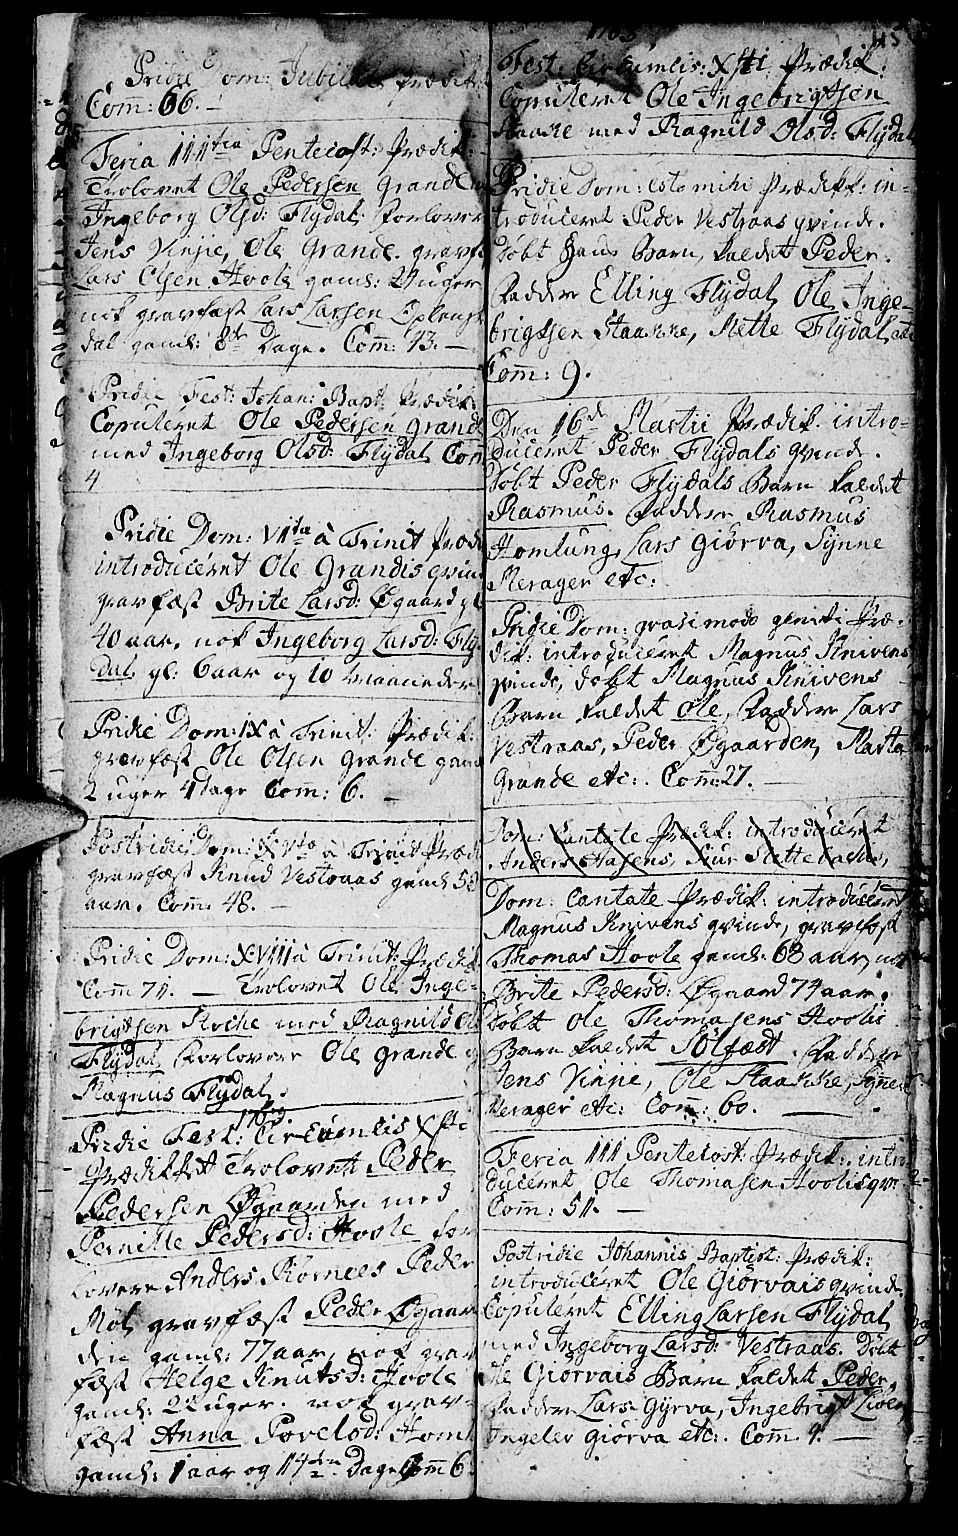 Pridie Dom: Jubilate Prædik:
Com: 66. —
Feria IIItia Pentecost: Prædik:
Trolovet Ole Pedersen Grande
Ingeborg Olsd: Flydal: Forlover
Jens Vinje, Ole Grande. gravf
Lars Olsen Hoole gaml: 2 uger
nok gravfæst Lars Larsen
dal gaml: 8te Dage. Com: 73. —
Pridie Fest: Johan: Bapt: Prædik:
Copuleret Ole Pedersen Grande
med Ingeborg Olsd: Flydal Com
4
Pridie Dom: VIIta à Trinit Prædi
introduceret Ole Grandis qvin
gravfæst Brite Larsd: Øgaard gl
40 aar, nok Ingeborg Larsd: Fly-
dal gl: 6 aar og 10 maaneder
Pridie Dom: IX à Trinit: Prædik:
gravfæst Ole Olsen Grande gaml
2 uger 4 Dage Com: 6. —
Postridie Dom: XVto à Trinit Prædi
gravfæst Knud Vestraas gaml 58
aar. Com: 48. —
Pridie Dom: XVIII à Trinit: Prædik
Com 71. — Trolovet Ole Inge-
brigtsen Stoche med Ragnild Ols
Flydal, Forlovere Ole Grande
Magnus Flydal.
Pridie Fest: Circumcis Xsti
Prædikket Trolovet Peder
Pedersen Øgaarden med
Pernille Pedersd: Hoole for
lovere Anders Peder
Møl, gravfæst Peder Øgaar
den gaml: 77 aar, nok grav
fæst Helge Knutsd: Hoole
gaml: 22 uger. nok grav-
fæst Anna Povelsd: Homl
gaml: 1 aar og 14 Dage Com 6
1763 115
Fest: Circumcis: Xsti Prædik:
Copuleret Ole Ingebrigtsen
Staache med Ragnild Olsd: Flydal
Pridie Dom: esto mihi Prædik: in-
troduceret Peder Vestraas qvinde.
Døbt Hans Barn, kaldet Peder.
Faddere Elling Flydal, Ole Inge-
brigtsen Staakke, Mette Flydal
Com: 9.
Den 16de Martii Prædik. intro-
duceret Peder Flydals qvinde.
Døbt Peder Flydals Barn kaldet
Rasmus. Faddere Rasmus
Homlung, Lars Giørva, Synne
Merager etc:
Pridie Dom: qvasimodo geniti Præ-
dik: introduceret Magnus Knivens
qvinde, døbt Magnus Knivens
Barn kaldet Ole, Faddere Lars
Vestraas, Peder Øgaarden, Marta
Grande etc: . Com: 27. —
Dom: Cantate Prædik: introduceret
Anders
Dom: Cantate Prædik: introduceret
Magnus Knivens qvinde, gravfæst
Thomas Hoole gaml: 68 aar, nok
Brite Pedersd: Øgaard 74 aar.
Døbt Ole Thomasens Hoolis
Barn kaldet Sølfæst. Faddere
Jens Vinje, Ole Staakke, Synne
Merager etc: Com: 60. —
Feria III Pentecost: Prædik: intro
duceret Ole Thomasen Hoolis qv
Com: 51. —
Postridie Johannis Baptist: Prædik:
introduceret Ole Giørvais qvinde
Copuleret Elling Larsen Flydal
med Ingeborg Larsd: Vestraas. Døbt
Ole Giørvais Barn kaldet Peder.
Faddere Lars Gyrva, Ingebrigt
Ingeler Giørva etc: Com. 4. —